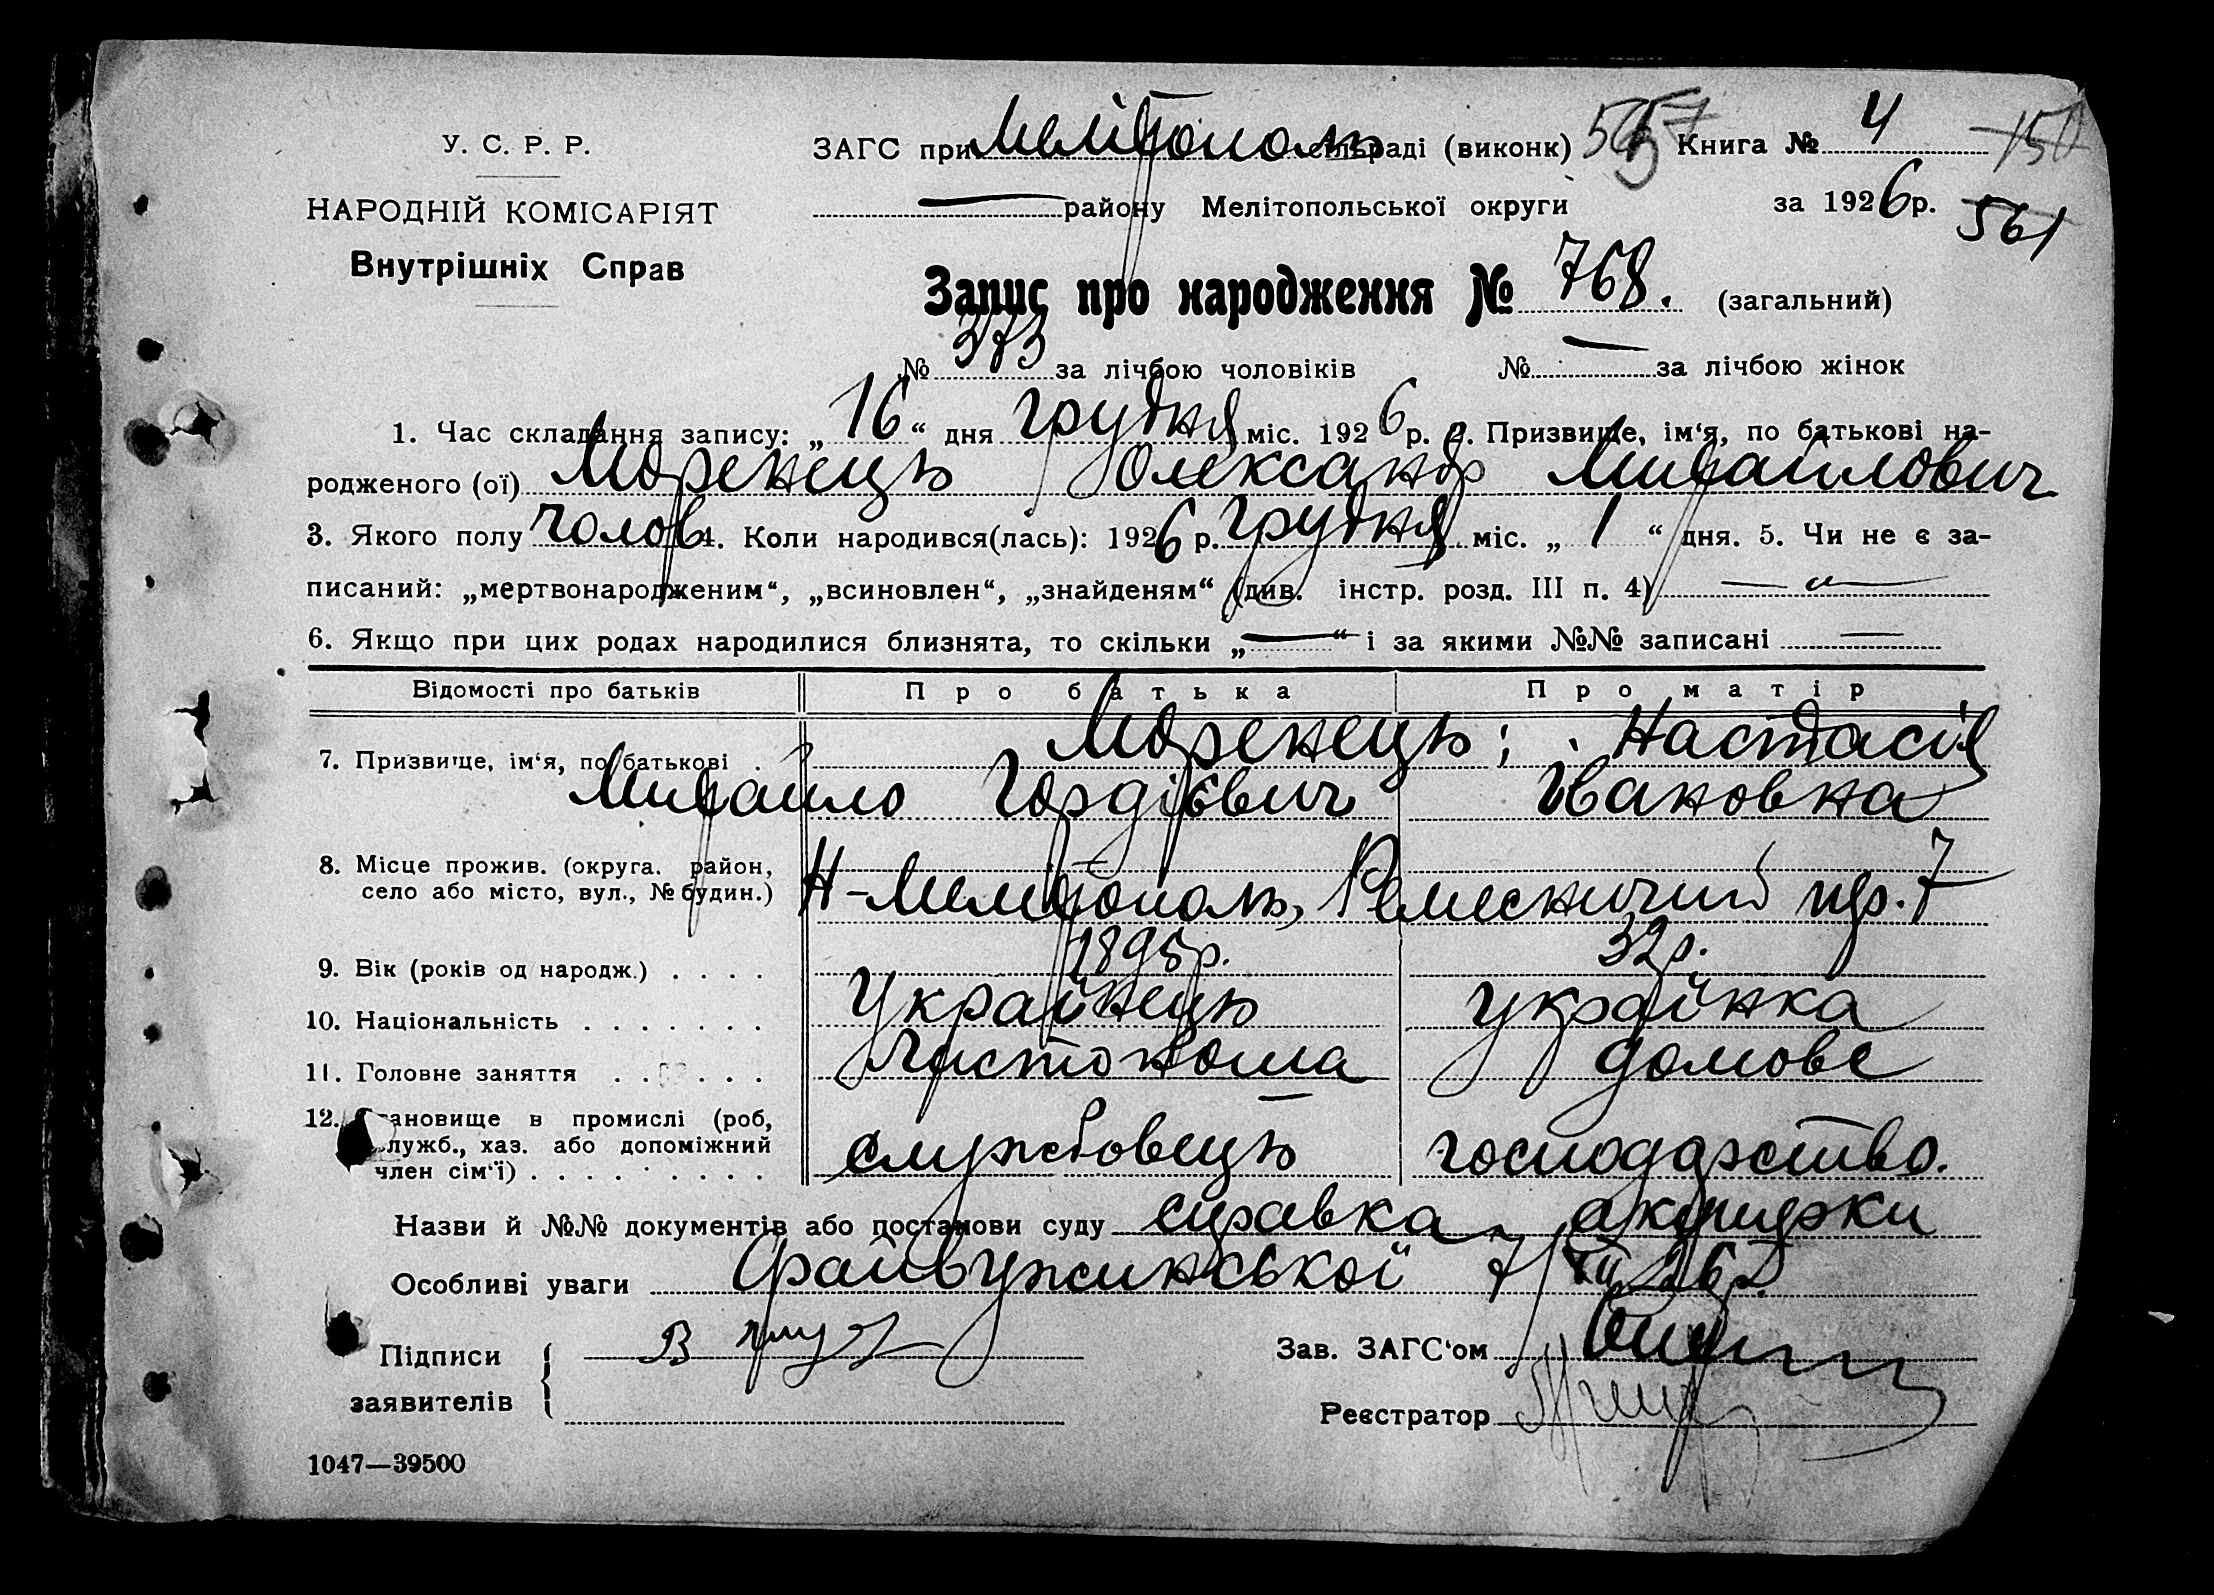 У. С. Р. Р.
НАРОДНІЙ КОМІСАРІЯТ
Внутрішніх Справ
ЗАГС при Мелітополь сільраді (виконк) Книга № 4 150
району Мелітопольської округи за 1926 р. 561
Запис про народження № 768. (загальний)
№ 373 за лічбою чоловіків № — за лічбою жінок
1. Час складання запису: „16“ дня грудня міс. 1926 р. 2. Призвище, ім‘я, по батькові на-
родженого (ої) Моренець Олександр Михайлович
3. Якого полу чолов 4. Коли народився(лась): 1926 р. грудня міс. „1“ дня. 5. Чи не є за-
писаний: „мертвонародженим“, „всиновлен“, „знайденям“ (див. інстр. розд. III п. 4)
6. Якщо при цих родах народилися близнята, то скільки „—“ і за якими №№ записані —
Відомості про батьків Про батька Про матір
7. Призвище, ім‘я, по батькові . Моренець; Настасія
Михайло Гордієвич Івановна
8. Місце прожив. (округа. район,
село або місто, вул., № будин.) Н-Мелітополь, Ремесничий пр. 7
9. Вік (років од народж.) . . . . 1895 р. 32 р.
10. Національність . . . . . . . Українець українка
11. Головне заняття . . . . . . Листоноша домове
12. Становище в промислі (роб,
служб., хаз. або допоміжний
член сім‘ї) . . . . . . . . службовець господарство.
Назви й №№ документів або постанови суду справка акушерки
Особливі уваги 7/XII 26 р.
Підписи
заявителів
Зав. ЗАГС‘ом
Реєстратор
1047—39500